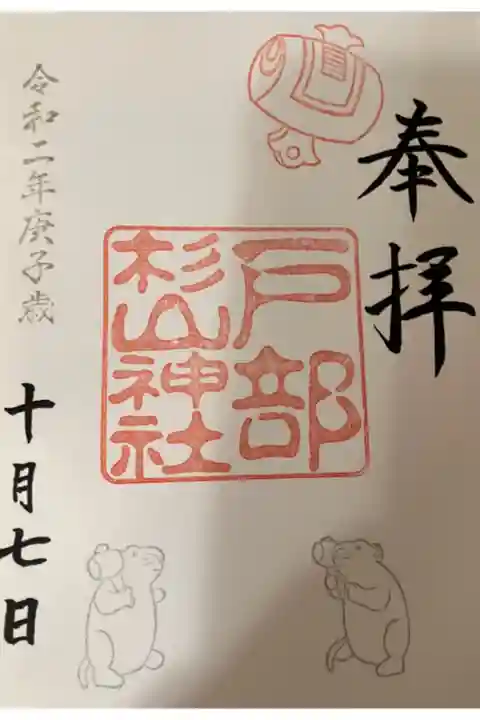 奉拝
戸部
杉山神社
令和二年庚子歳
十月七日